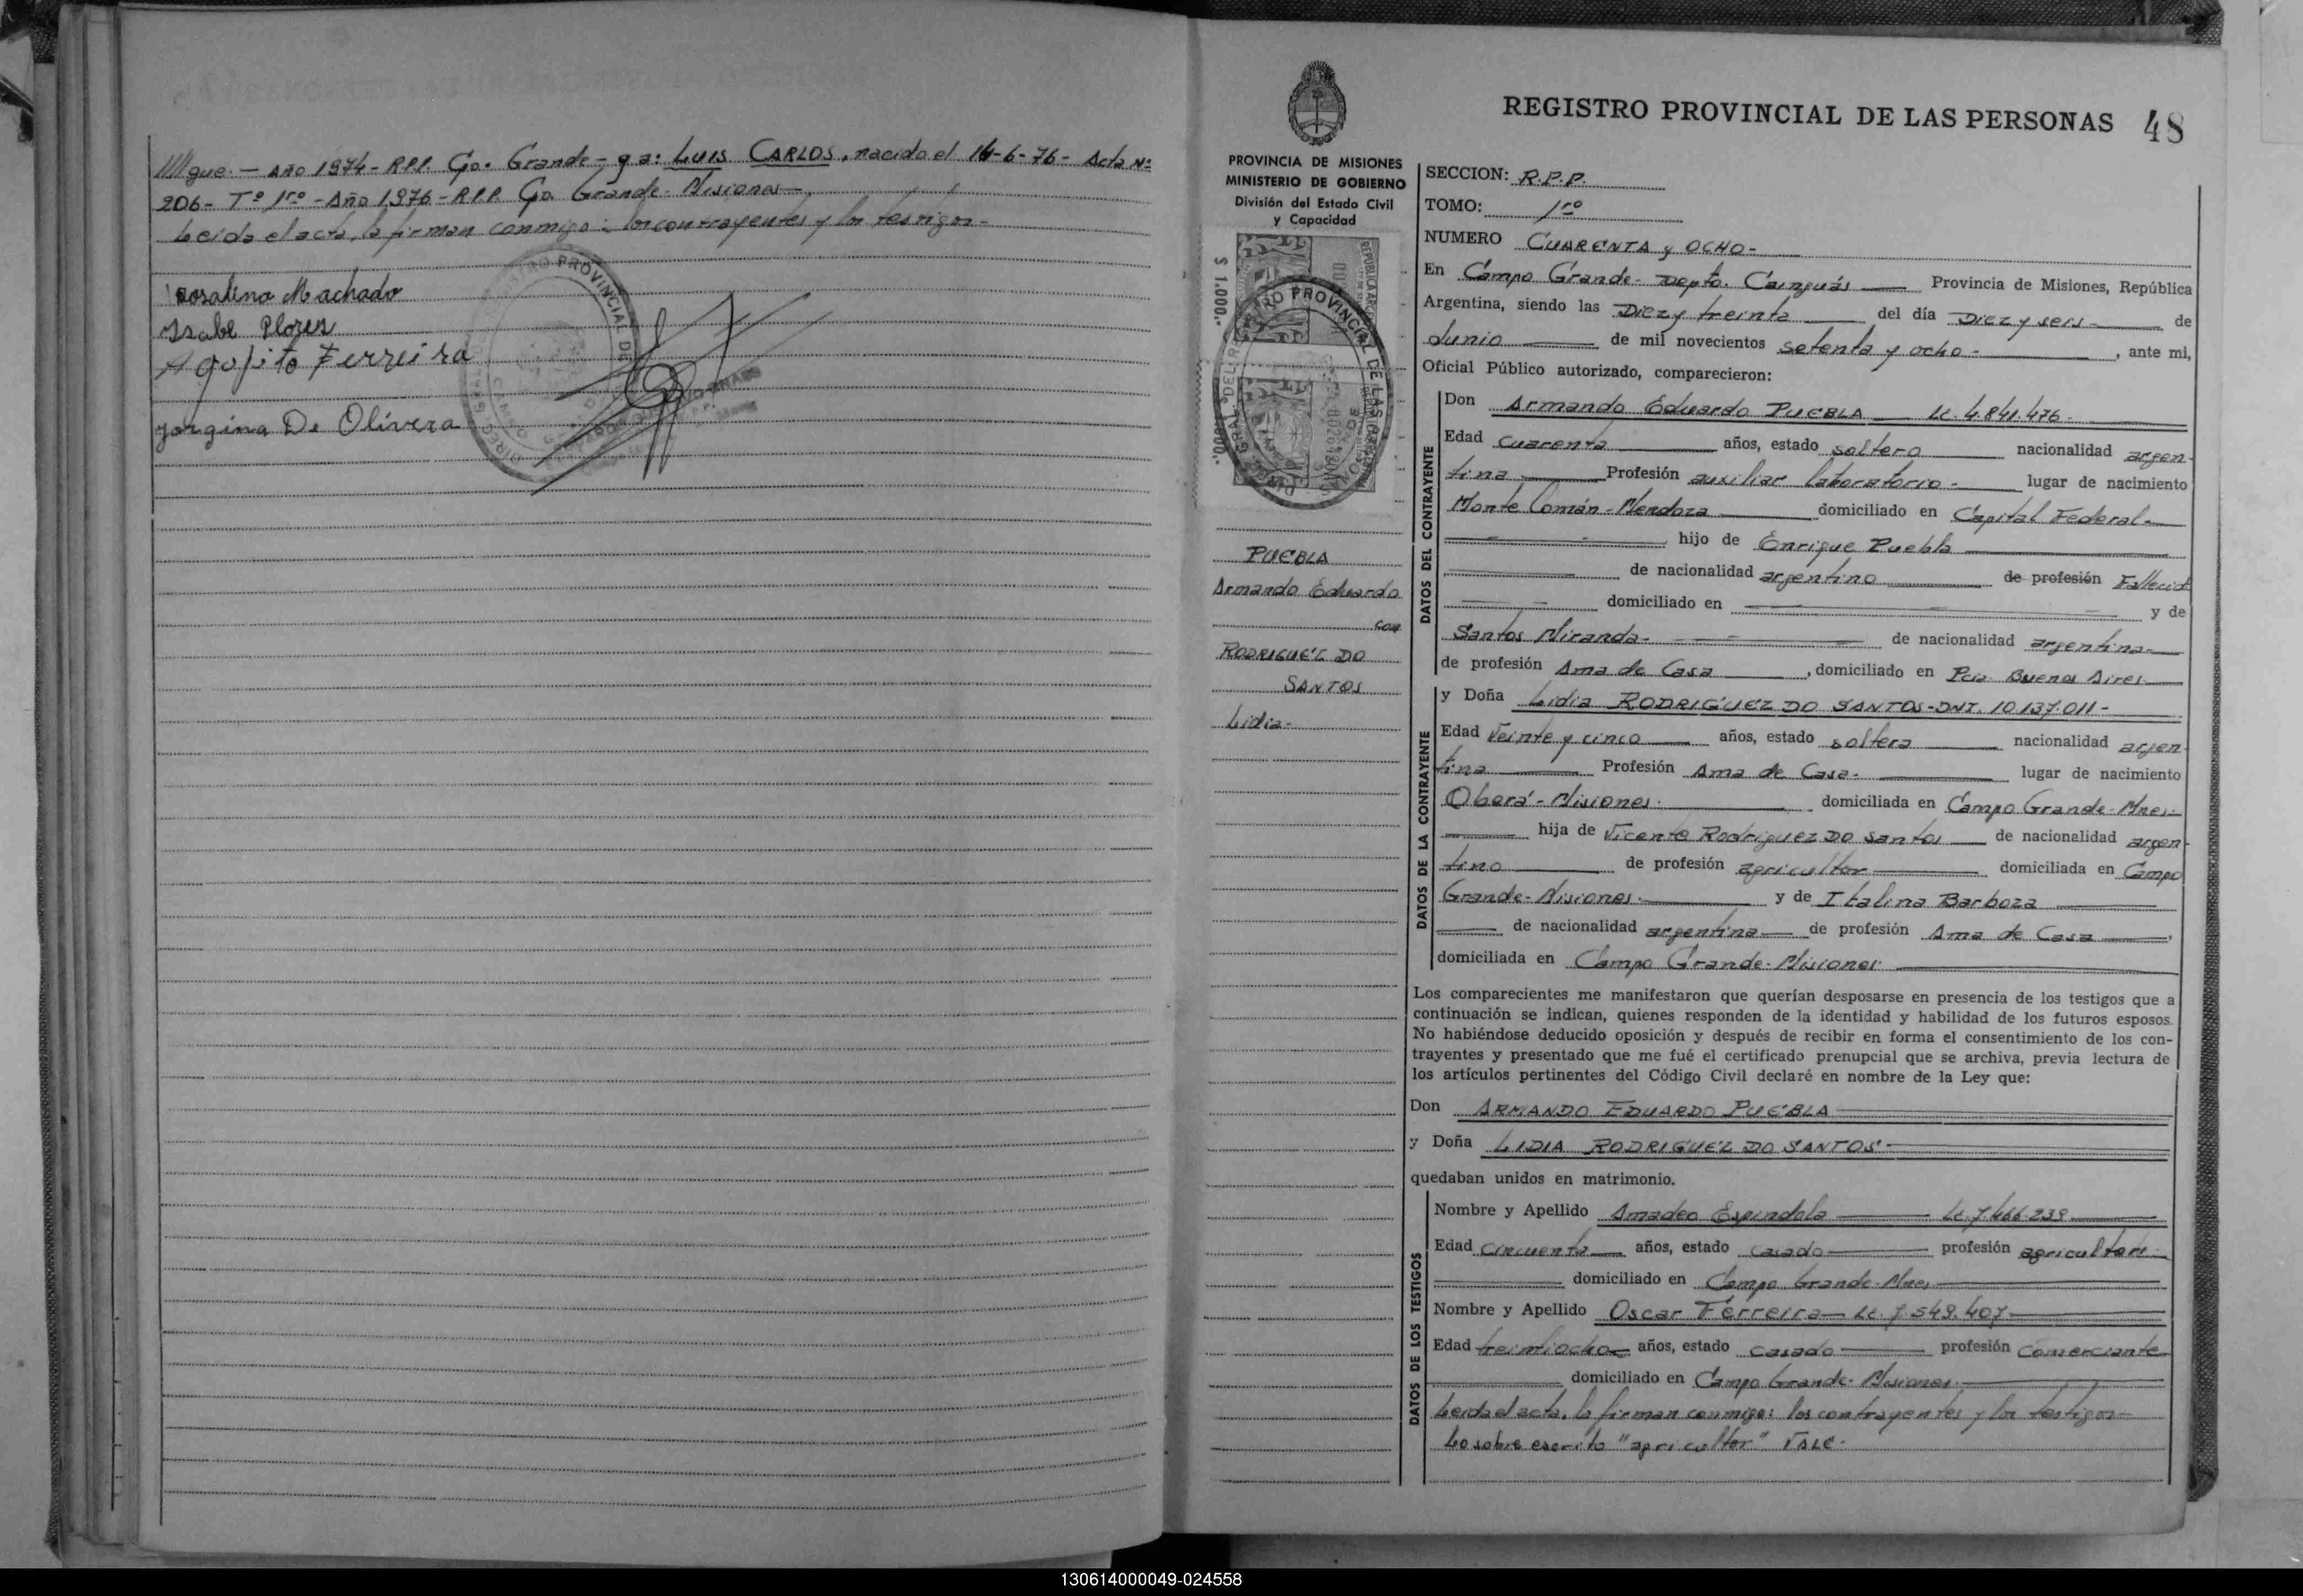 ///gue.— Año 1974- R.P.P. Gpo. Grande- y a: LUIS CARLOS, nacido el 14-6-76- Acta Nº
206- Tº 1rº - Año 1976- R.P.P. Gpo. Grande- Misiones—.
Leida el acta, la firman conmigo: los contrayentes y los testigos-
Rosalino Machado
Isabe Plozen
Agopito Ferreira
Jorgina De Olivera
REGISTRO PROVINCIAL DE LAS PERSONAS 48
PROVINCIA DE MISIONES
MINISTERIO DE GOBIERNO
División del Estado Civil
y Capacidad
$ 1.000.-
PUEBLA
Armando Eduardo
con
RODRIGUEZ DO
SANTOS
Lidia-
SECCION: R.P.P.
TOMO: 1rº
NUMERO CUARENTA y OCHO-
En Campo Grande- Depto. Cainguás — Provincia de Misiones, República
Argentina, siendo las Diez y treinta — del día Diez y seis- de
Junio — de mil novecientos setenta y ocho- , ante mi,
Oficial Público autorizado, comparecieron:
DATOS DEL CONTRAYENTE
Don Armando Eduardo PUEBLA — LE. 4.841.476-
Edad cuarenta — años, estado soltero — nacionalidad argen-
tina — Profesión auxiliar laboratorio- lugar de nacimiento
Monte Comán- Mendoza — domiciliado en Capital Federal-
— hijo de Enrique Puebla —
— de nacionalidad argentino — de profesión Fallecid
— domiciliado en — y de
Santos Miranda- — de nacionalidad argentina-
de profesión Ama de Casa — , domiciliado en Pcia. Buenos Aires
DATOS DE LA CONTRAYENTE
y Doña Lidia RODRIGUEZ DO SANTOS-DNI. 10.137.011-
Edad Veinte y cinco — años, estado soltera — nacionalidad argen-
tina — Profesión Ama de Casa- — lugar de nacimiento
Oberá- Misiones. — domiciliada en Campo Grande- Mnes.-
— hija de Vicente Rodriguez DO Santos — de nacionalidad argen-
tino — de profesión agricultor — domiciliada en Campo
Grande- Misiones. — y de Italina Barboza —
— de nacionalidad argentina — de profesión Ama de Casa —,
domiciliada en Campo Grande- Misiones —
Los comparecientes me manifestaron que querían desposarse en presencia de los testigos que a
continuación se indican, quienes responden de la identidad y habilidad de los futuros esposos.
No habiéndose deducido oposición y después de recibir en forma el consentimiento de los con-
trayentes y presentado que me fué el certificado prenupcial que se archiva, previa lectura de
los artículos pertinentes del Código Civil declaré en nombre de la Ley que:
Don ARMANDO EDUARDO PUEBLA —
y Doña LIDIA RODRIGUEZ DO SANTOS- —
quedaban unidos en matrimonio.
DATOS DE LOS TESTIGOS
Nombre y Apellido Amadeo Espindola — LE. 7.466.239 —
Edad cincuenta — años, estado casado — profesión agricultor
— domiciliado en Campo Grande- Mnes —
Nombre y Apellido Oscar Ferreira — LE. 7.549.407 —
Edad treintiocho — años, estado casado — profesión Comerciante
— domiciliado en Campo Grande- Misiones. —
Leida el acta, la firman conmigo: los contrayentes y los testigos-
Lo sobre escrito "agricultor" VALE-
130614000049-024558